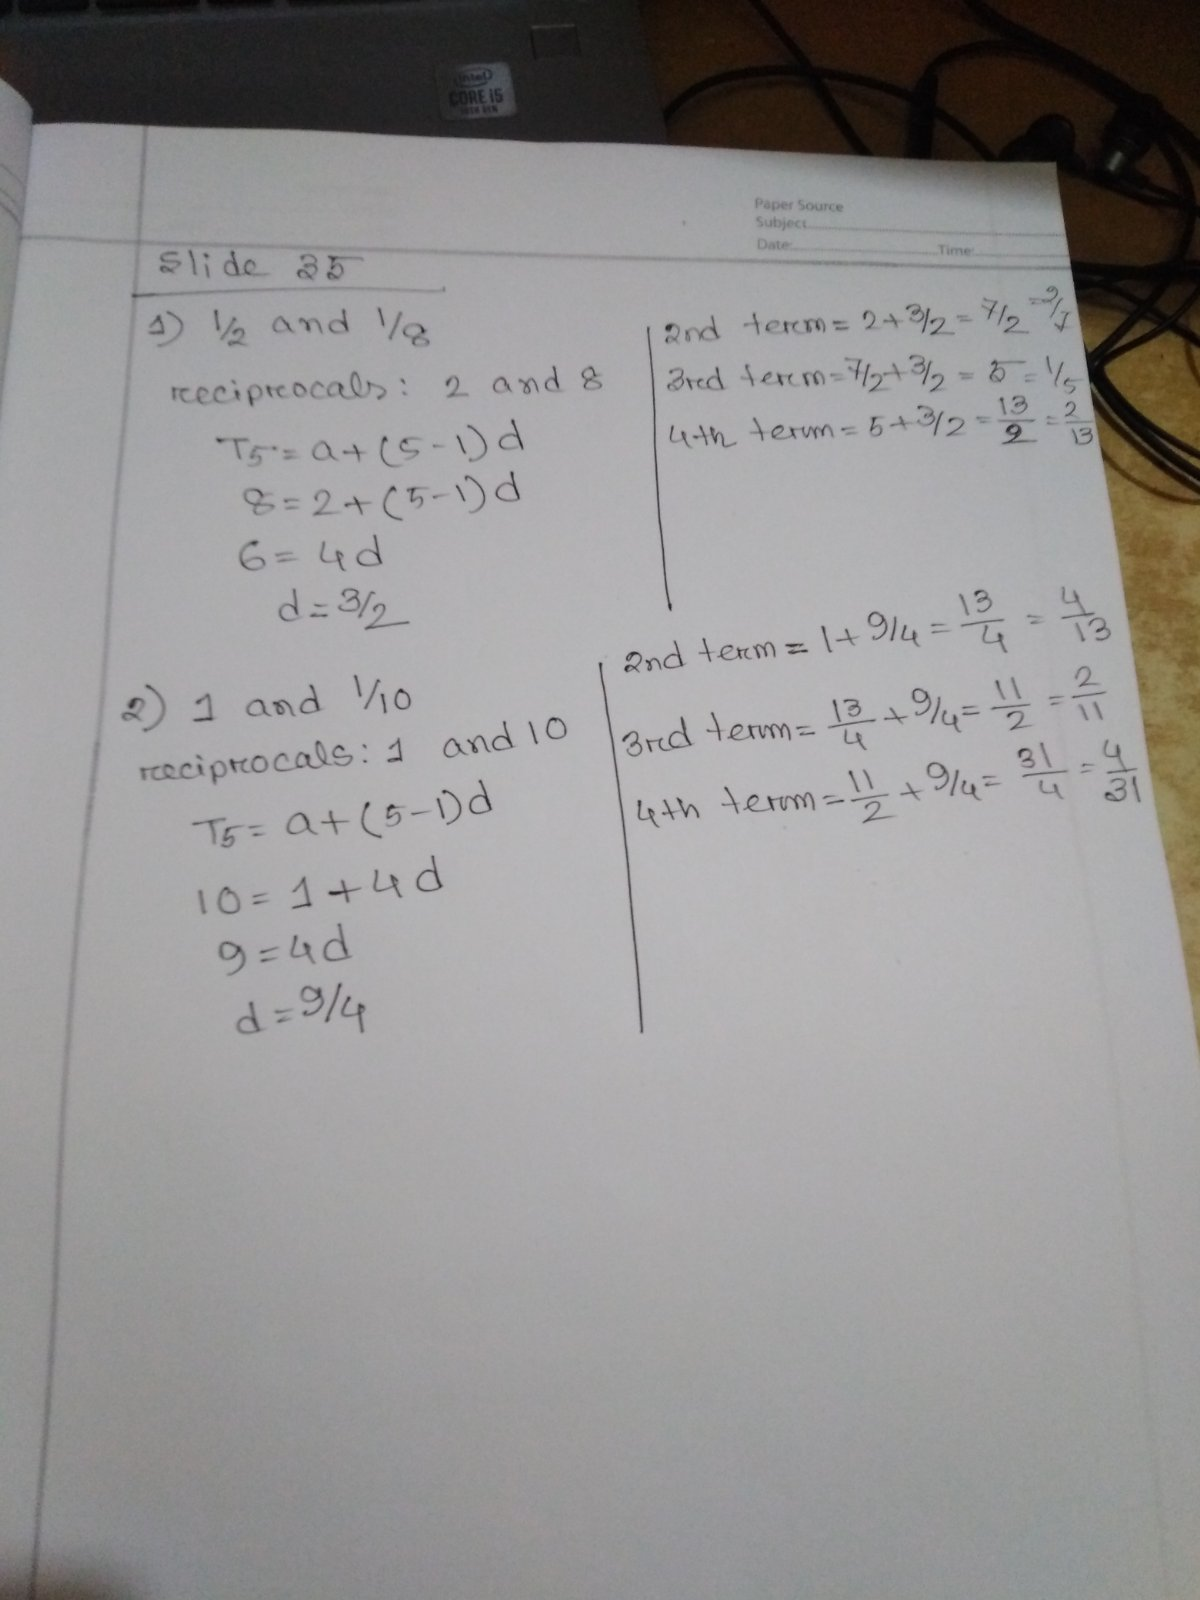 intel
CORE i5
10TH GEN
Paper Source
Subject
Date: Time:
Slide 35
1) 1/2 and 1/8
reciprocals: 2 and 8
T5 = a+(5-1)d
8 = 2+(5-1)d
6 = 4d
d = 3/2
2nd term = 2+3/2 = 7/2 = 2/7
3rd term = 7/2+3/2 = 5 = 1/5
4th term = 5+3/2 = 13/2 = 2/13
2) 1 and 1/10
reciprocals: 1 and 10
T5 = a+(5-1)d
10 = 1+4d
9 = 4d
d = 9/4
2nd term = 1+9/4 = 13/4 = 4/13
3rd term = 13/4+9/4 = 11/2 = 2/11
4th term = 11/2+9/4 = 31/4 = 4/31